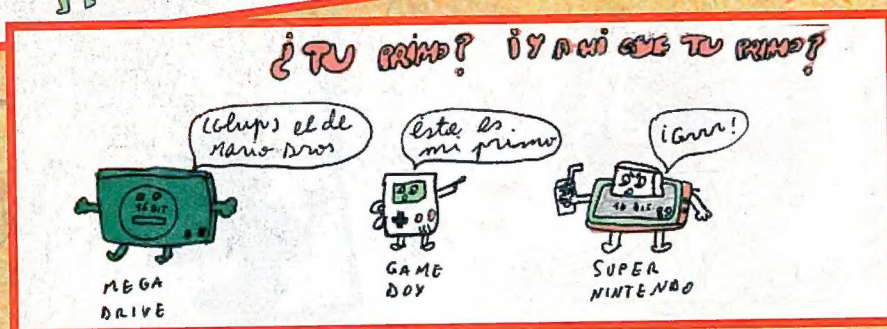 ¿TU PRIMO? ¡Y A MI QUE TU PRIMO?
(Glup) el de
Mario Bros
éste es
mi primo
¡Grrr!
16 BIT
16 BIT
MEGA
DRIVE
GAME
BOY
SUPER
NINTENDO